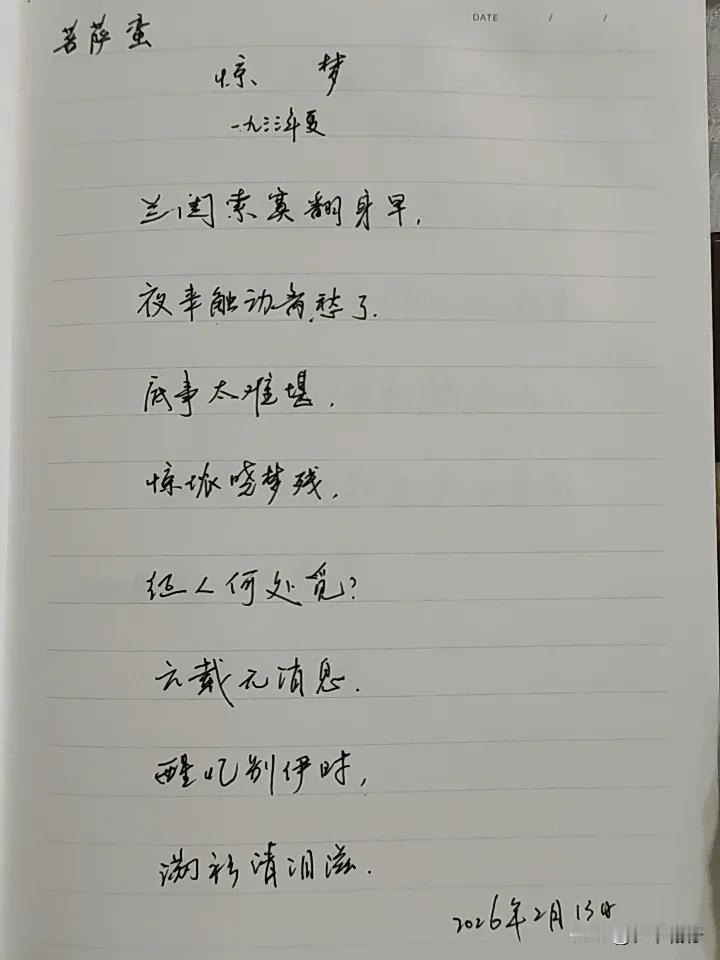 DATE / /
菩萨蛮
惊 梦
一九三三年夏
兰闺索寞翻身早,
夜来触动离愁了.
底事太难堪,
惊侬晓梦残.
征人何处觅?
六载无消息.
醒忆别伊时,
满衫清泪滋.
2026年2月13日